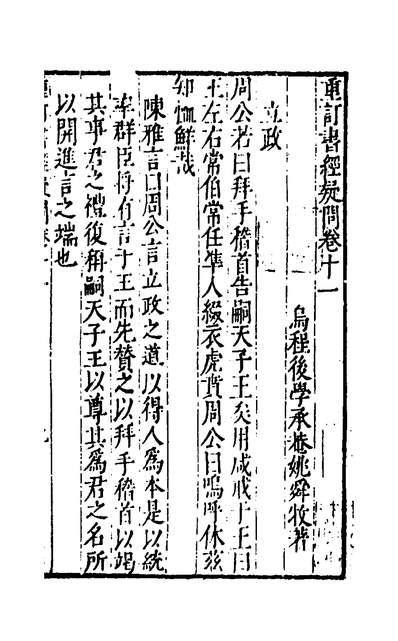 重訂書經疑問卷十一
烏程後學承菴姚舜牧著
立政
周公若曰拜手稽首告嗣天子王矣用咸戒于王曰
王左右常伯常任準人綴衣虎賁周公曰嗚呼休茲
知恤鮮哉
陳雅言曰周公言立政之道以得人爲本是以統
率群臣將有言于王而先贊之以拜手稽首以竭
其事君之禮復稱嗣天子王以尊其爲君之名所
以開進言之端也
重訂書經疑問卷十一